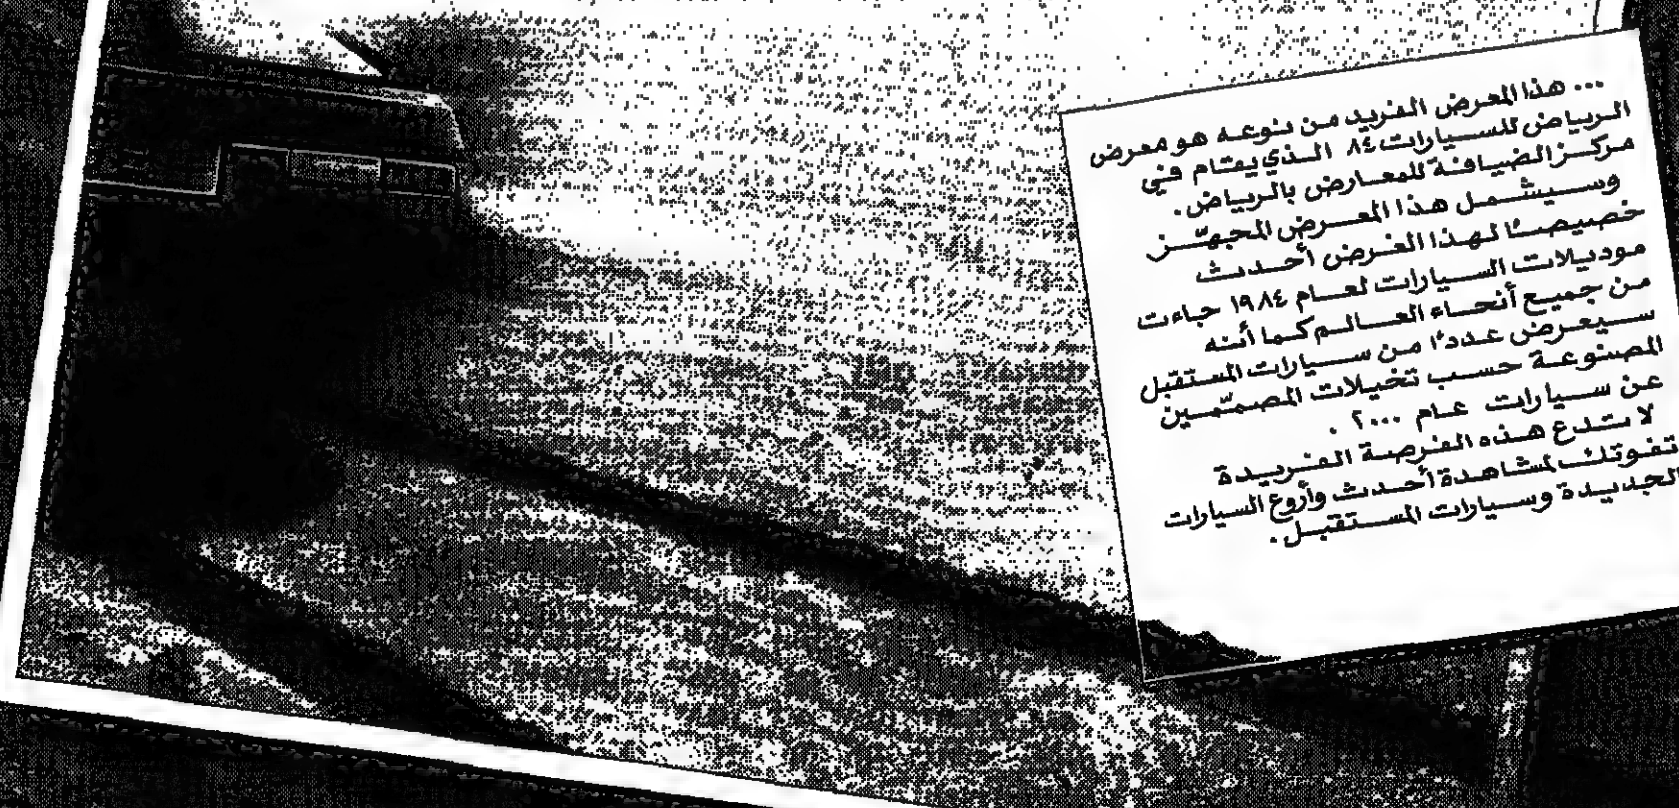 ... هذا المعرض الفريد من نوعه هو معرض
الرياض للسيارات ٨٤ الذي يقام في
مركز الضيافة للمعارض بالرياض.
وسيشمل هذا المعرض المجهّز
خصيصًا لهذا الغرض أحدث
موديلات السيارات لعام ١٩٨٤ جاءت
من جميع أنحاء العالم كما أنه
سيعرض عددًا من سيارات المستقبل
المصنوعة حسب تخيلات المصمّمين
عن سيارات عام ٢٠٠٠.
لا تدع هذه الفرصة الفريدة
تفوتك لمشاهدة أحدث وأروع السيارات
الجديدة وسيارات المستقبل.